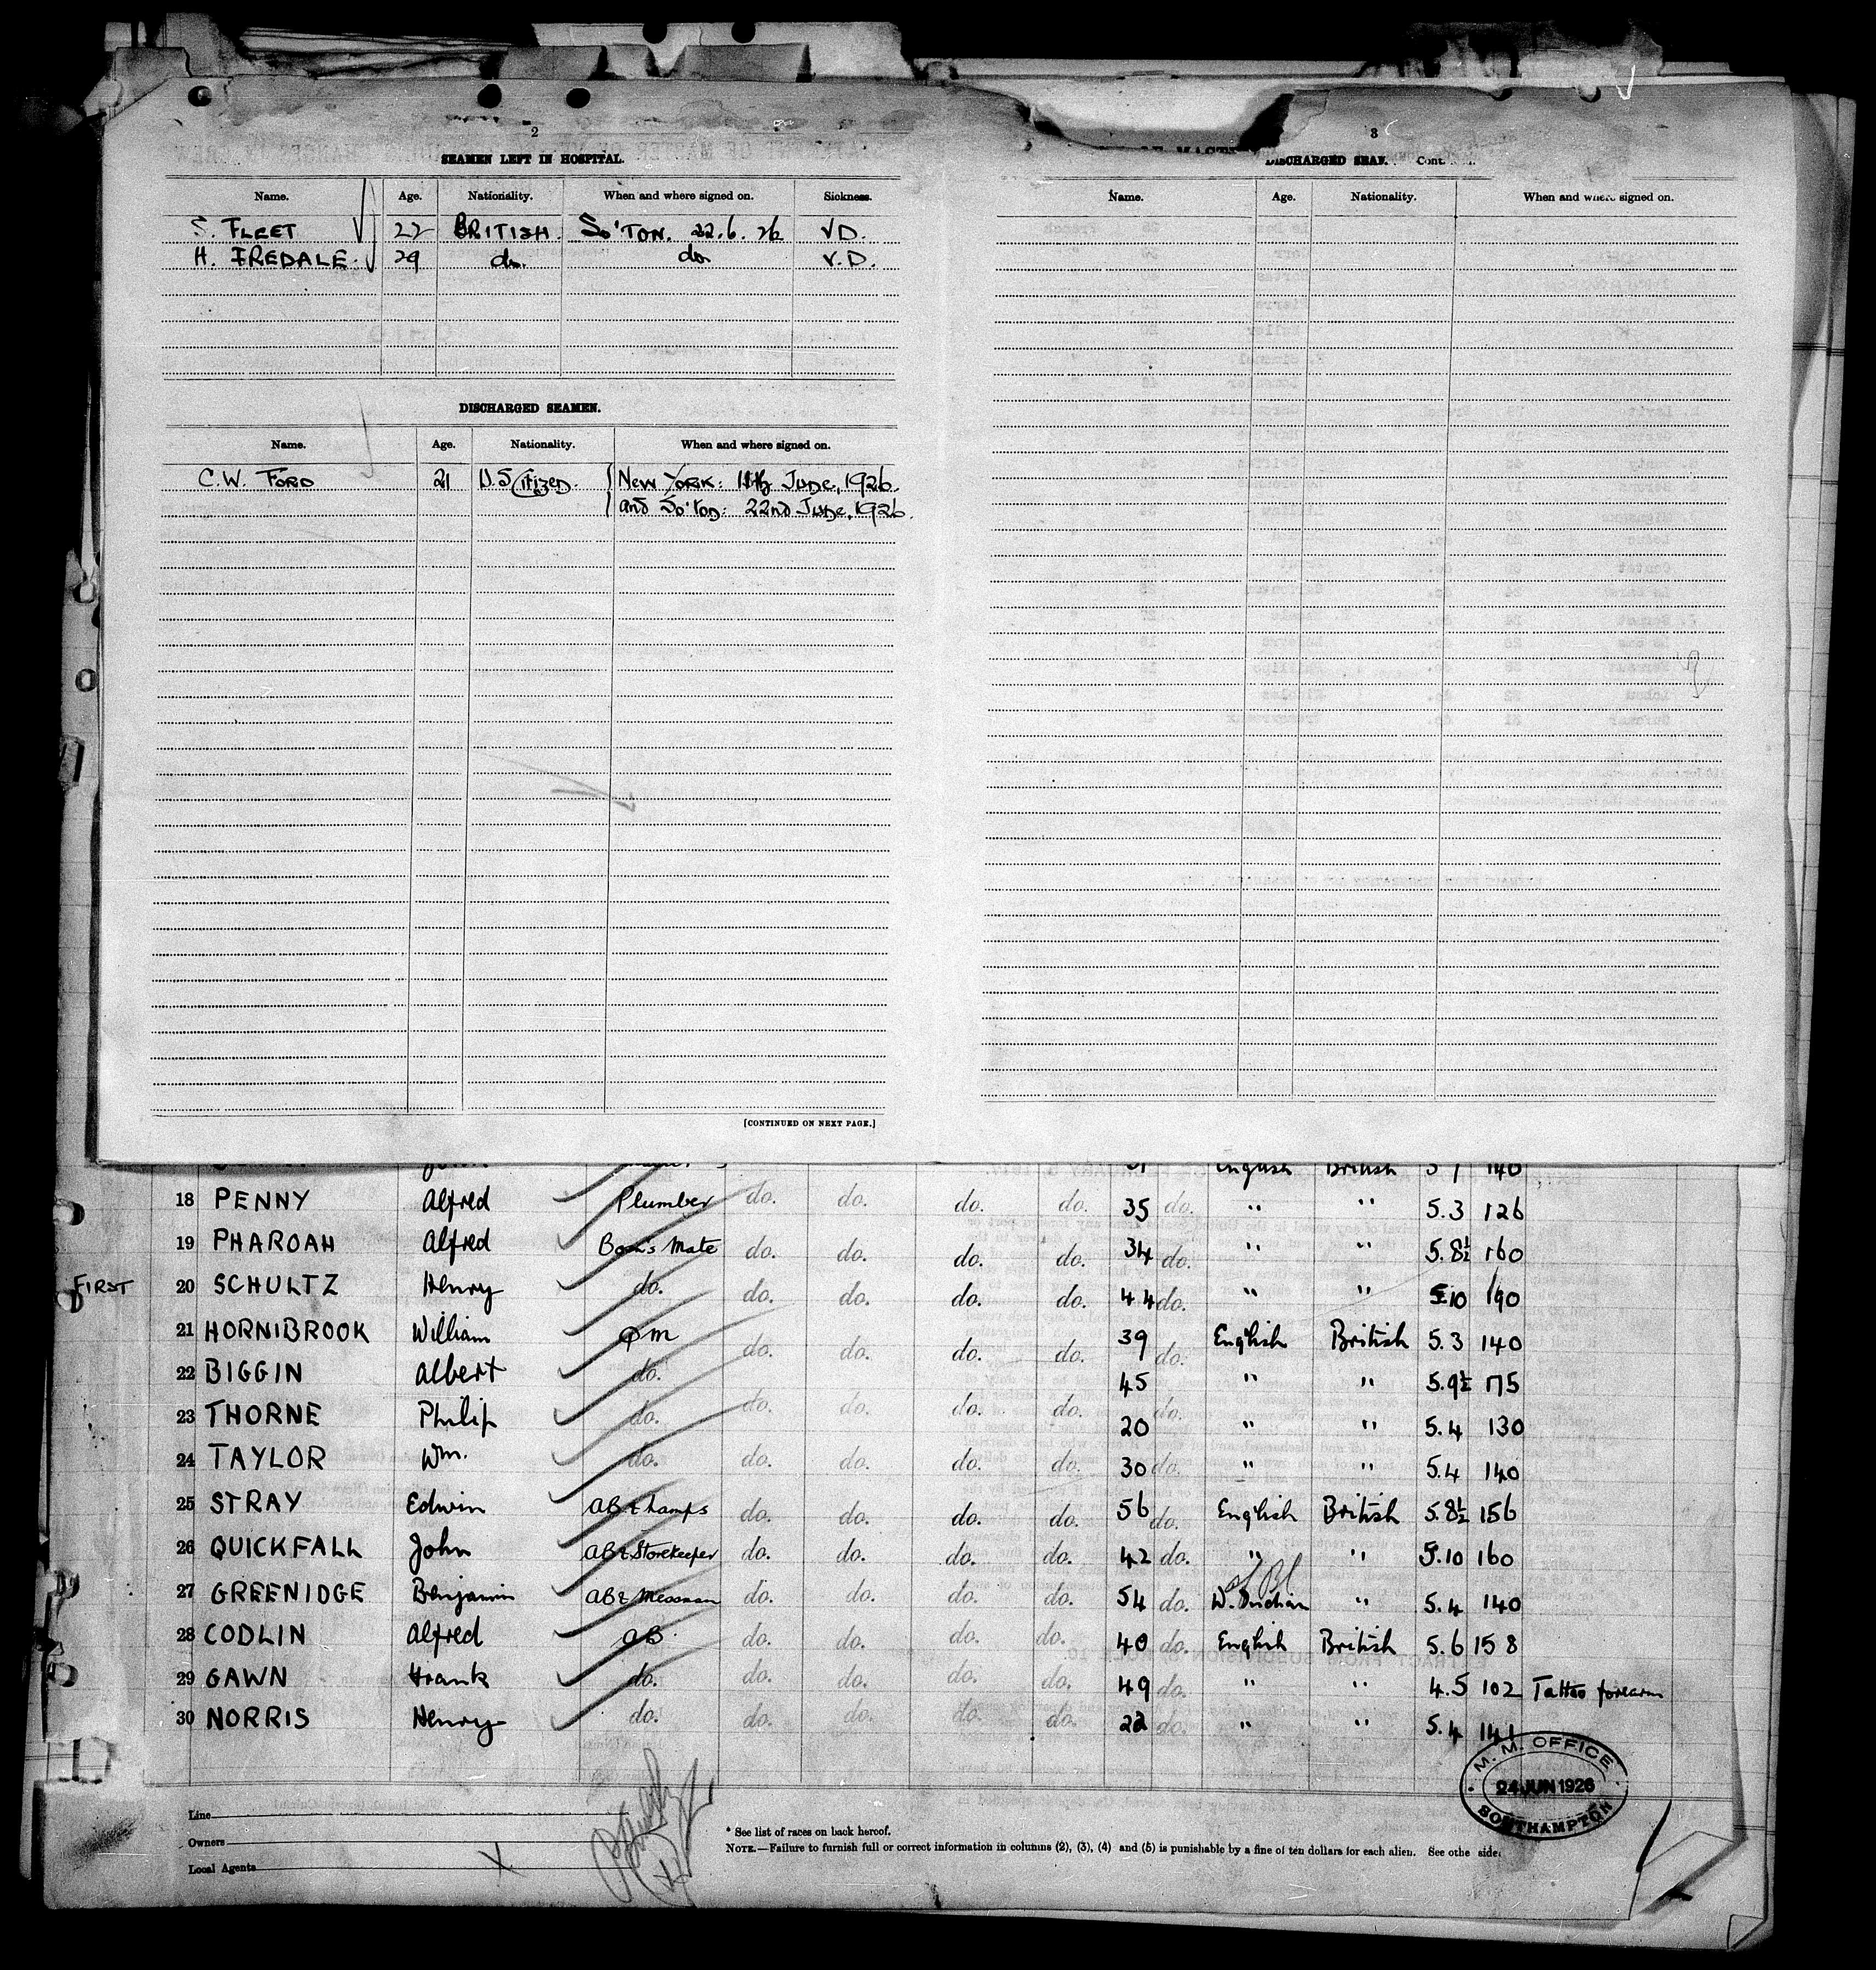 2
SEAMEN LEFT IN HOSPITAL.
Name. Age. Nationality. When and where signed on. Sickness.
S. FLEET 22 BRITISH. So'TON. 22.6.26 VD.
H. IREDALE. 29 do. do. V.D.
DISCHARGED SEAMEN.
Name. Age. Nationality. When and where signed on.
C.W. FORD 21 U.S Citizen. New York: 11th June, 1926.
and So'ton: 22nd June, 1926.
[CONTINUED ON NEXT PAGE.]
3
DISCHARGED SEAM. Cont.
Name. Age. Nationality. When and where signed on.
English British 5 7 140
18 PENNY Alfred Plumber do. do. do. do. 35 do. " " 5.3 126
19 PHAROAH Alfred Bosn's Mate do. do. do. do. 34 do. " " 5.8½ 160
FIRST 20 SCHULTZ Henry do. do. do. do. do. 44 do. " " 5.10 190
21 HORNIBROOK William QM do. do. do. do. 39 do. English British 5.3 140
22 BIGGIN Albert do. 45 " " 5.9½ 175
23 THORNE Philip do. do. do. do. do. 20 do. " " 5.4 130
24 TAYLOR Wm. do. do. do. do. do. 30 do. " " 5.4 140
25 STRAY Edwin AB & Lamps do. do. do. do. 56 do. English British 5.8½ 156
26 QUICKFALL John AB & Storekeeper do. do. do. do. 42 do. " " 5.10 160
27 GREENIDGE Benjamin AB & Messman do. do. do. do. 54 do. W. Indian " 5.4 140
28 CODLIN Alfred AB. do. do. do. do. 40 do. English British 5.6 158
29 GAWN Frank do. do. do. do. do. 49 do. " " 4.5 102 Tattoo forearm
30 NORRIS Henry do. do. do. do. do. 22 do. " " 5.4 141
M. M. OFFICE
24 JUN 1926
SOUTHAMPTON
Line
Owners
Local Agents
* See list of races on back hereof.
NOTE.—Failure to furnish full or correct information in columns (2), (3), (4) and (5) is punishable by a fine of ten dollars for each alien. See othe side.